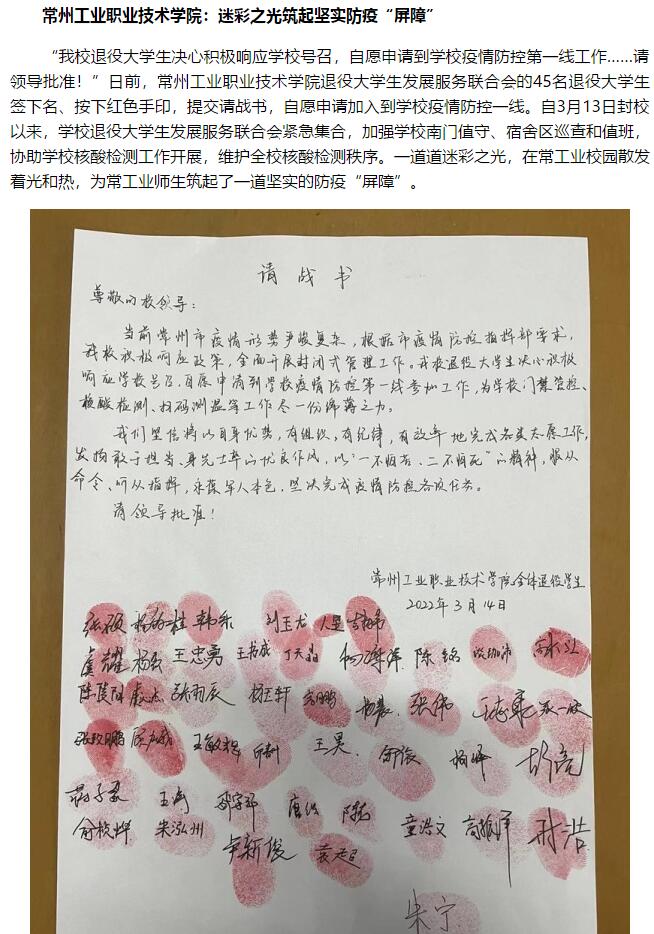 常州工业职业技术学院：迷彩之光筑起坚实防疫“屏障”
“我校退役大学生决心积极响应学校号召，自愿申请到学校疫情防控第一线工作......请
领导批准！”日前，常州工业职业技术学院退役大学生发展服务联合会的45名退役大学生
签下名、按下红色手印，提交请战书，自愿申请加入到学校疫情防控一线。自3月13日封校
以来，学校退役大学生发展服务联合会紧急集合，加强学校南门值守、宿舍区巡查和值班，
协助学校核酸检测工作开展，维护全校核酸检测秩序。一道道迷彩之光，在常工业校园散发
着光和热，为常工业师生筑起了一道坚实的防疫“屏障”。
请战书
尊敬的校领导：
当前常州市疫情形势严峻复杂，根据市疫情防控指挥部要求，
我校积极响应政策，全面开展封闭式管理工作。我校退役大学生决心积极
响应学校号召，自愿申请到学校疫情防控第一线参加工作，为学校门禁管控、
核酸检测、扫码测温等工作尽一份绵薄之力。
我们坚信将以自身优势，有组织，有纪律，有效率地完成各类志愿工作，
发扬敢于担当、身先士卒的优良作风，以“一不怕苦、二不怕死”的精神，服从
命令、听从指挥，永葆军人本色，坚决完成疫情防控各项任务。
请领导批准！
常州工业职业技术学院全体退役学生
2022年3月14日
韩乐 刘玉龙
虞耀 杨弘 王忠勇 丁天晶 陈铭
张雨辰 杨轩 张伟
王敏辉 王昊 胡亮
唐
俞枝烨 朱泓州 童浩文 高振泽 孙浩
尹新俊 袁超
朱宁